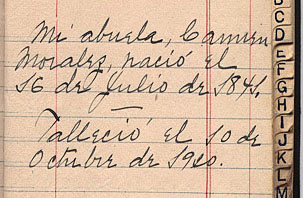 Mi abuela, Carmen
Morales, nació el
16 de Julio de 1841.
Falleció el 10 de
Octubre de 1920.
C
D
E
F
G
H
I
J
K
L
M